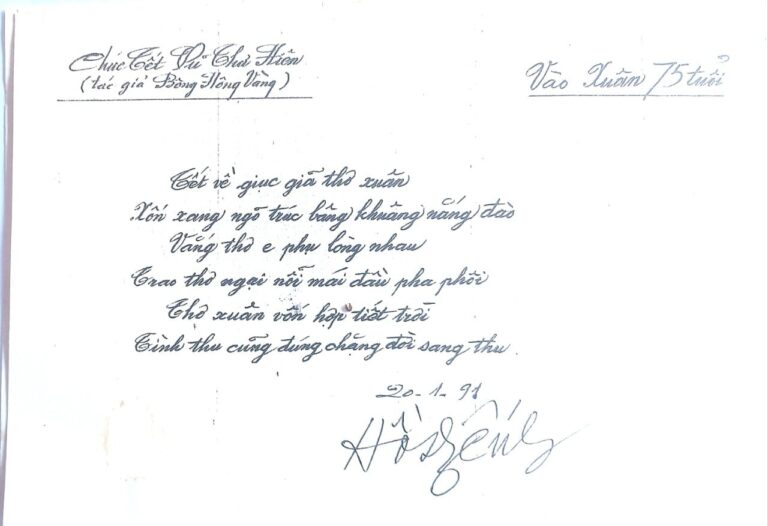 Chúc Tết Vũ Thư Hiên
(tác giả Bông Hồng Vàng)
Vào Xuân 75 tuổi
Tết về giục giã thơ xuân
Xốn xang ngõ trúc bâng khuâng nắng đào
Vắng thơ e phụ lòng nhau
Trao thơ ngại nỗi mái đầu pha phôi
Thơ xuân vốn hợp tiết trời
Tình thu cũng đúng chẳng đòi sang thu
20-1-91
Hồ Dzếnh